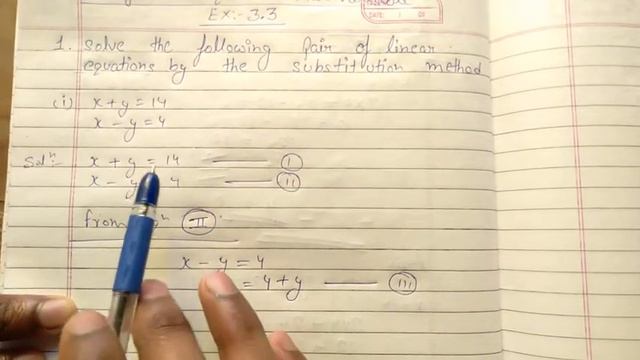 DATE:
Ex:- 3.3
1. solve the following pair of linear
equations by the substitution method
(i) x + y = 14
x - y = 4
Solⁿ:- x + y = 14 (I)
x - y 4 (II)
from ⁿ (II)
x - y = 4
= 4 + y (III)